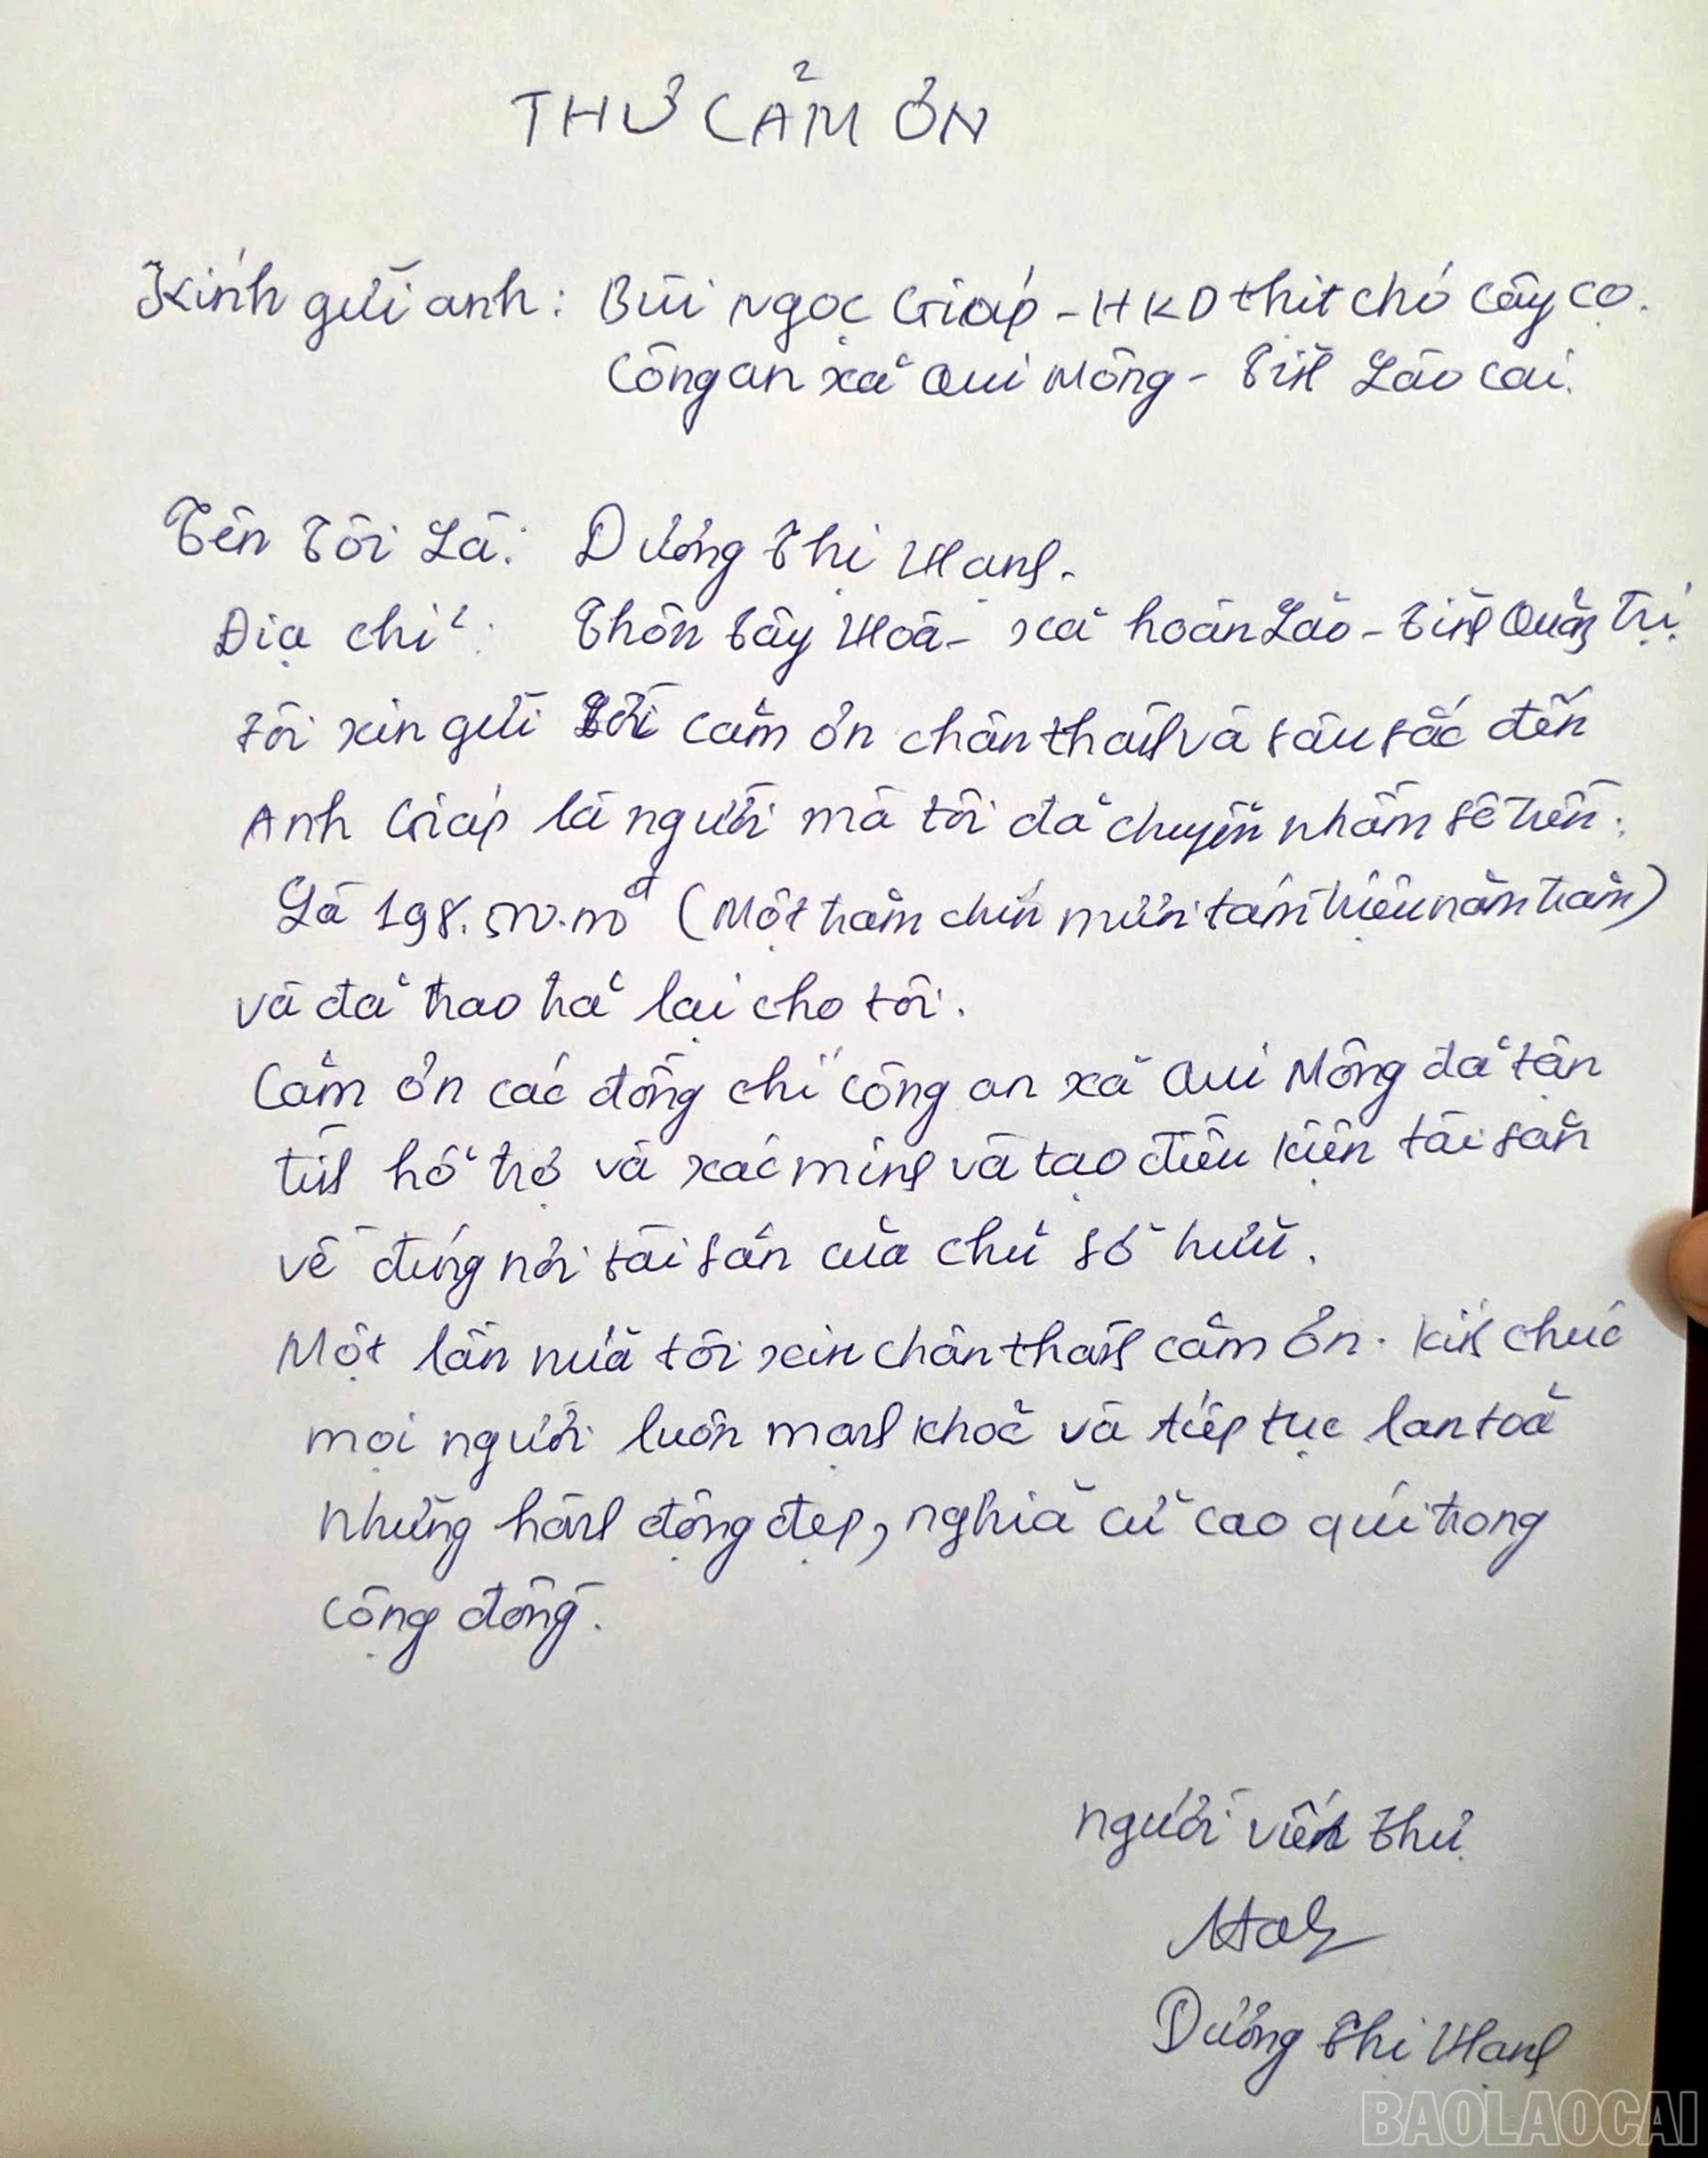 THƯ CẢM ƠN
Kính gửi anh: Bùi Ngọc Giáp - HKD thịt chó Cây Cọ.
Công an xã Qui Mông - Tỉnh Lào Cai.
Tên Tôi Là: Dương Thị Hạnh.
Địa chỉ: Thôn Tây Hoà - xã hoàn Lão - Tỉnh Quảng Trị
tôi xin gửi Lời cảm ơn chân thành và sâu sắc đến
Anh Giáp là người mà tôi đã chuyển nhầm số tiền:
Là 198.500.000đ (Một trăm chín mươi tám triệu năm trăm)
và đã trao trả lại cho tôi.
Cảm ơn các đồng chí công an xã Qui Mông đã tận
tình hỗ trợ và xác minh và tạo điều kiện tài sản
về đúng nơi tài sản của chủ sở hữu.
Một lần nữa tôi xin chân thành cảm ơn. Kính chúc
mọi người luôn mạnh khoẻ và tiếp tục lan toả
những hành động đẹp, nghĩa cử cao quí trong
cộng đồng.
người viết thư
Dương Thị Hạnh
BAOLAOCAI